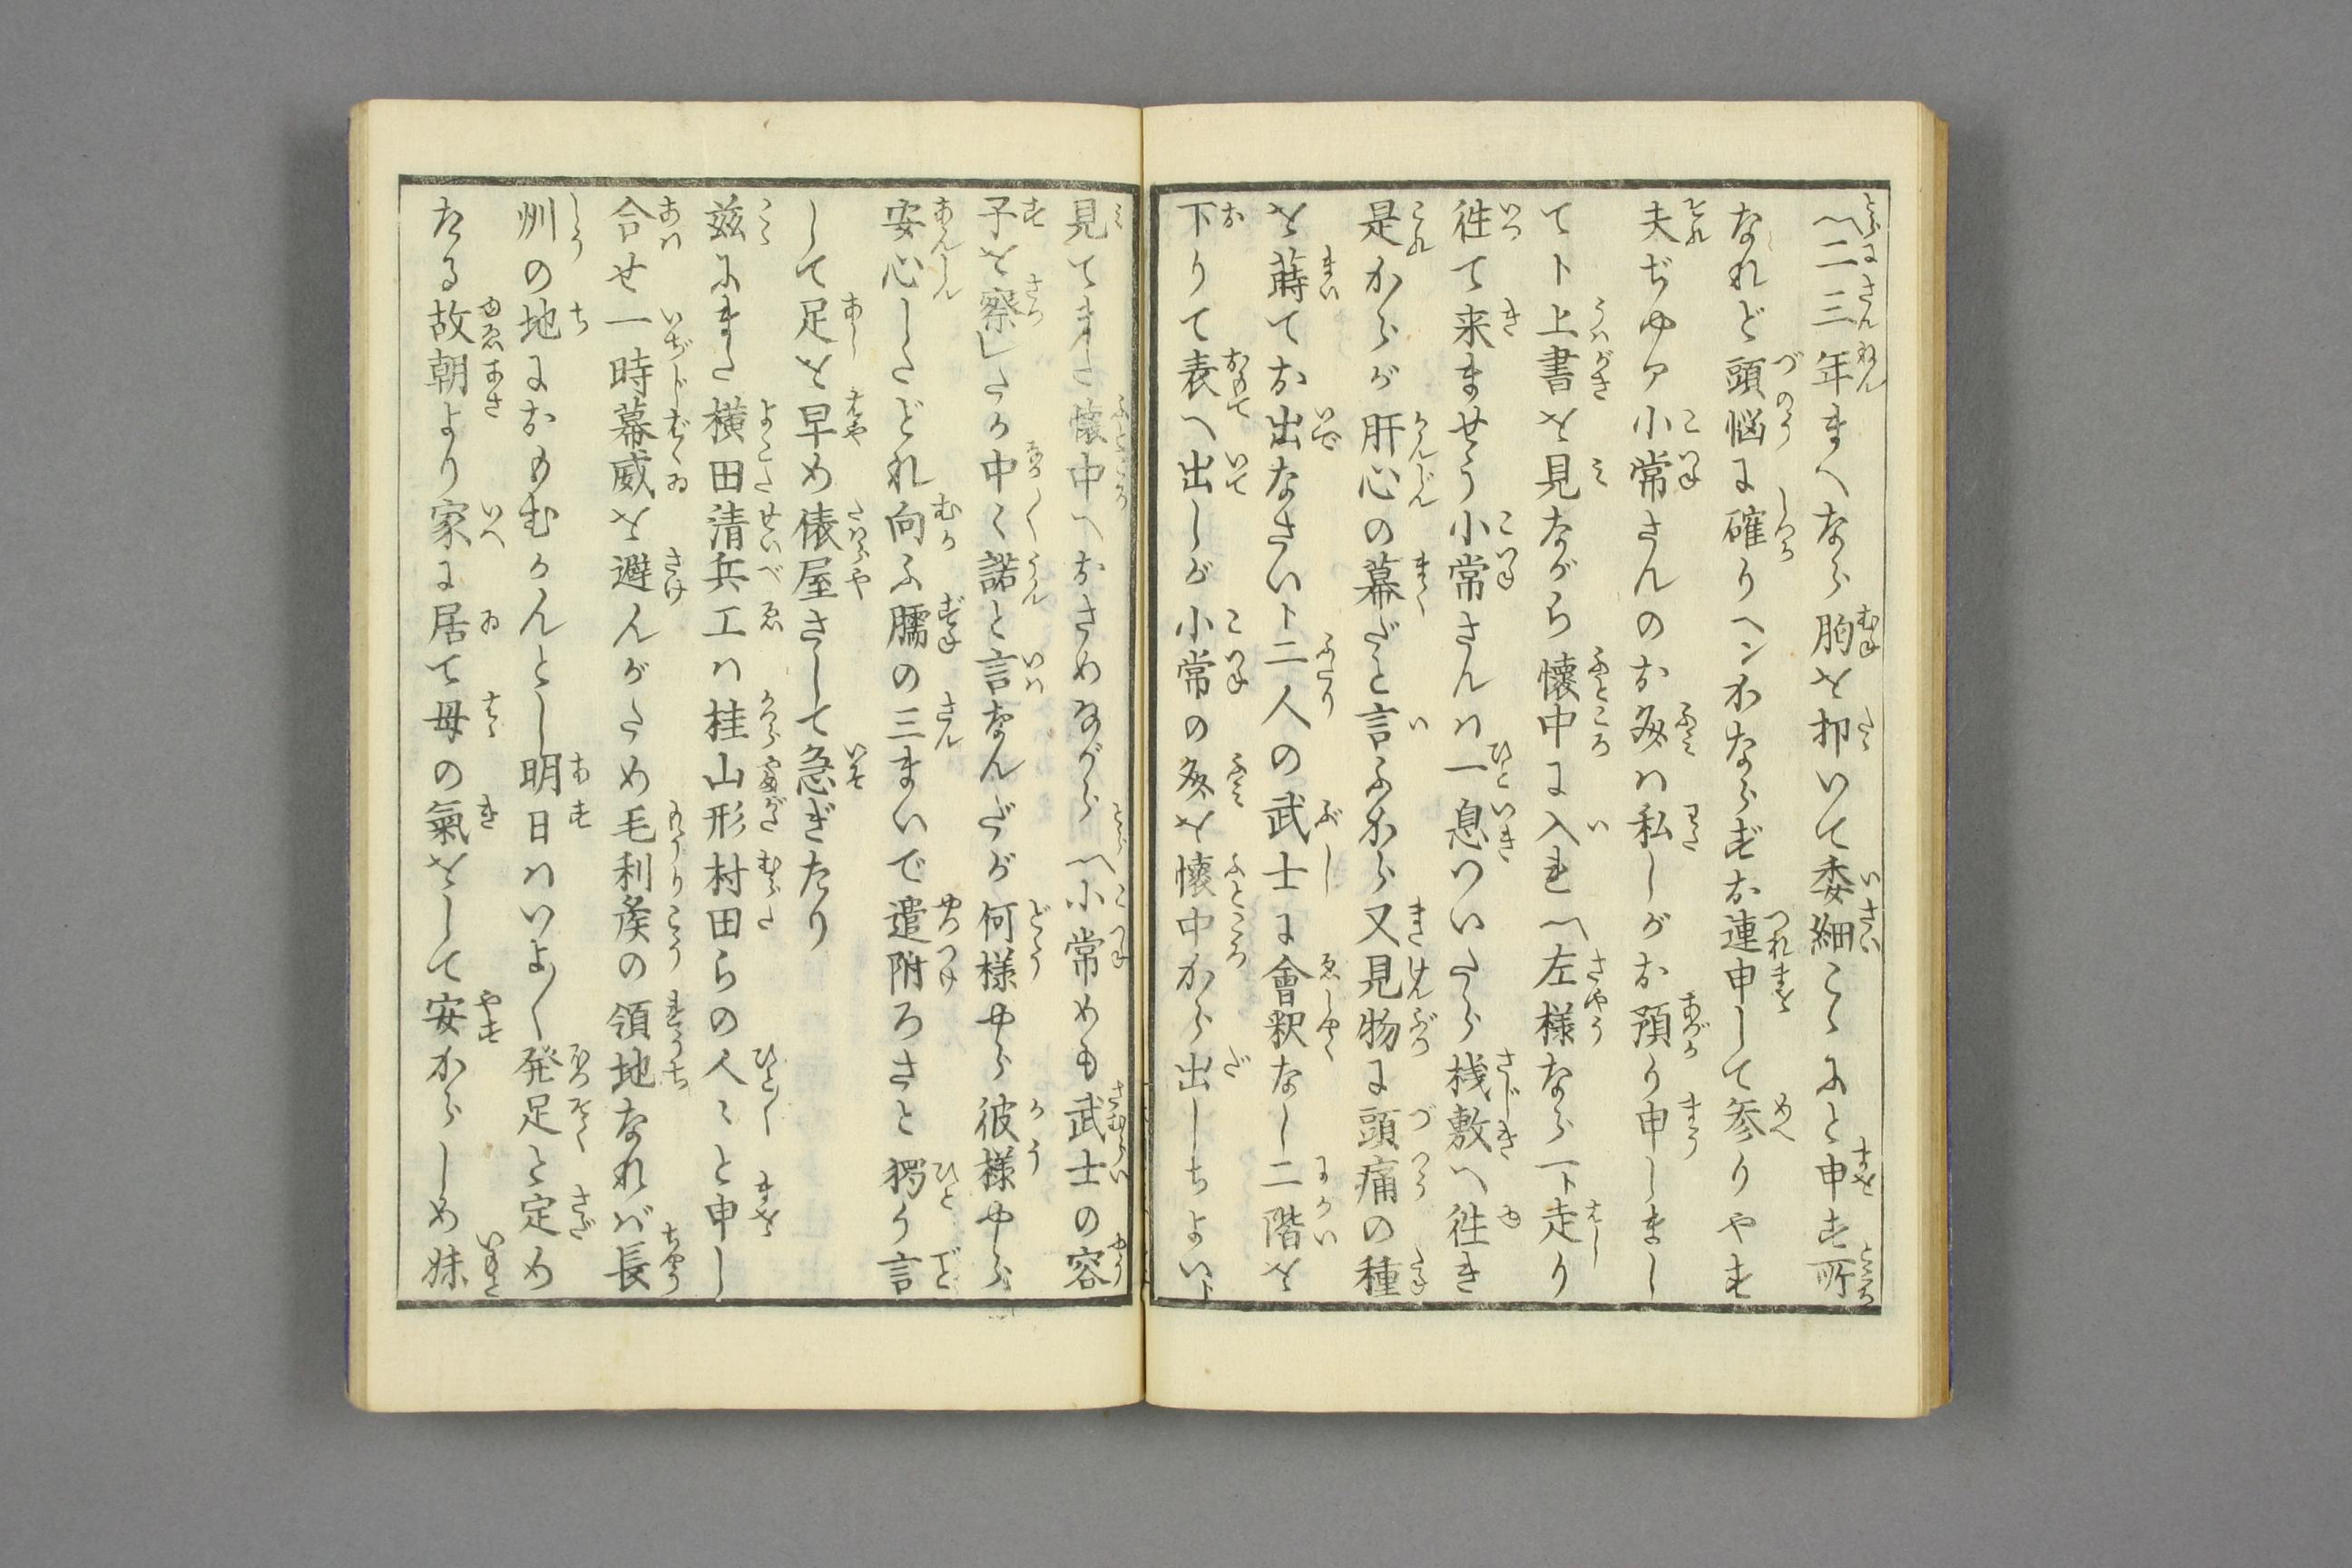 〽二三年まへなら胸を抑いて委細こゝにと申す所
なれど頭悩に確りヘンかならずお連申して参りやす
夫ぢゆア小常さんのお文ハ私しがお預り申しまし
てト上書を見ながら懐中に入れ〽左様なら一ト走り
徃て来ませう小常さんハ一息ついたら桟敷へ徃き
是からが肝心の幕だと言ふから又見物に頭痛の種
を蒔てお出なさいト二人の武士に會釈なし二階を
下りて表へ出しが小常の文を懐中から出しちよいト
見てまた懐中へおさめながら〽小常めも武士の容
子を察したか中〻諾と言なんだが何様やら彼様やら
安心したどれ向ふ臑の三まいで遣附ろさと獨り言
して足を早め俵屋さして急ぎたり
茲にまた横田清兵エハ桂山形村田らの人〻と申し
合せ一時幕威を避んがため毛利矦の領地なれバ長
州の地におもむかんとし明日ハいよ〱発足と定め
たる故朝より家に居て母の氣をして安からしめ妹